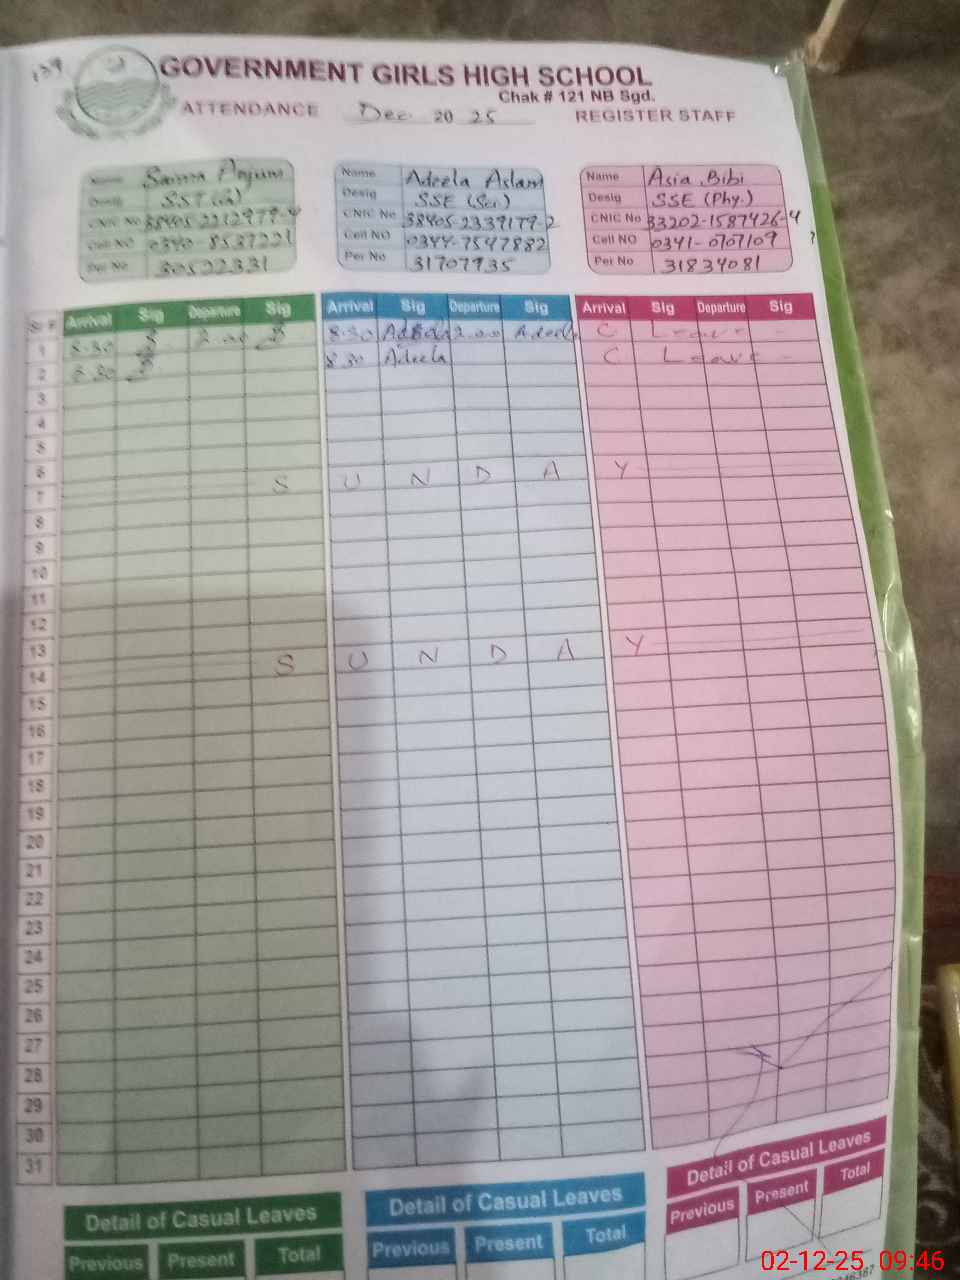 139
GOVERNMENT GIRLS HIGH SCHOOL
Chak # 121 NB Sgd.
ATTENDANCE Dec 20 25 REGISTER STAFF
Name Saima Anjum
Desig SST (G)
CNIC No 38405-2212979-4
Cell NO 0340-8537221
Per No 30522331
Name Adeela Aslam
Desig SSE (Sci)
CNIC No 38405-2339179-2
Cell NO 0344-7547882
Per No 31707935
Name Asia Bibi
Desig SSE (Phy.)
CNIC No 33202-1587426-4
Cell NO 0341-0707109
Per No 31834081
Sr # Arrival Sig Departure Sig Arrival Sig Departure Sig Arrival Sig Departure Sig
1 8.30 2.00 8.30 Adeela 2.00 Adeela C Leave -
2 8.30 8.30 Adeela C Leave -
3
4
5
6
7 S U N D A Y
8
9
10
11
12
13
14 S U N D A Y
15
16
17
18
19
20
21
22
23
24
25
26
27
28
29
30
31
Detail of Casual Leaves Detail of Casual Leaves Detail of Casual Leaves
Previous Present Total Previous Present Total Previous Present Total
02-12-25, 09:46